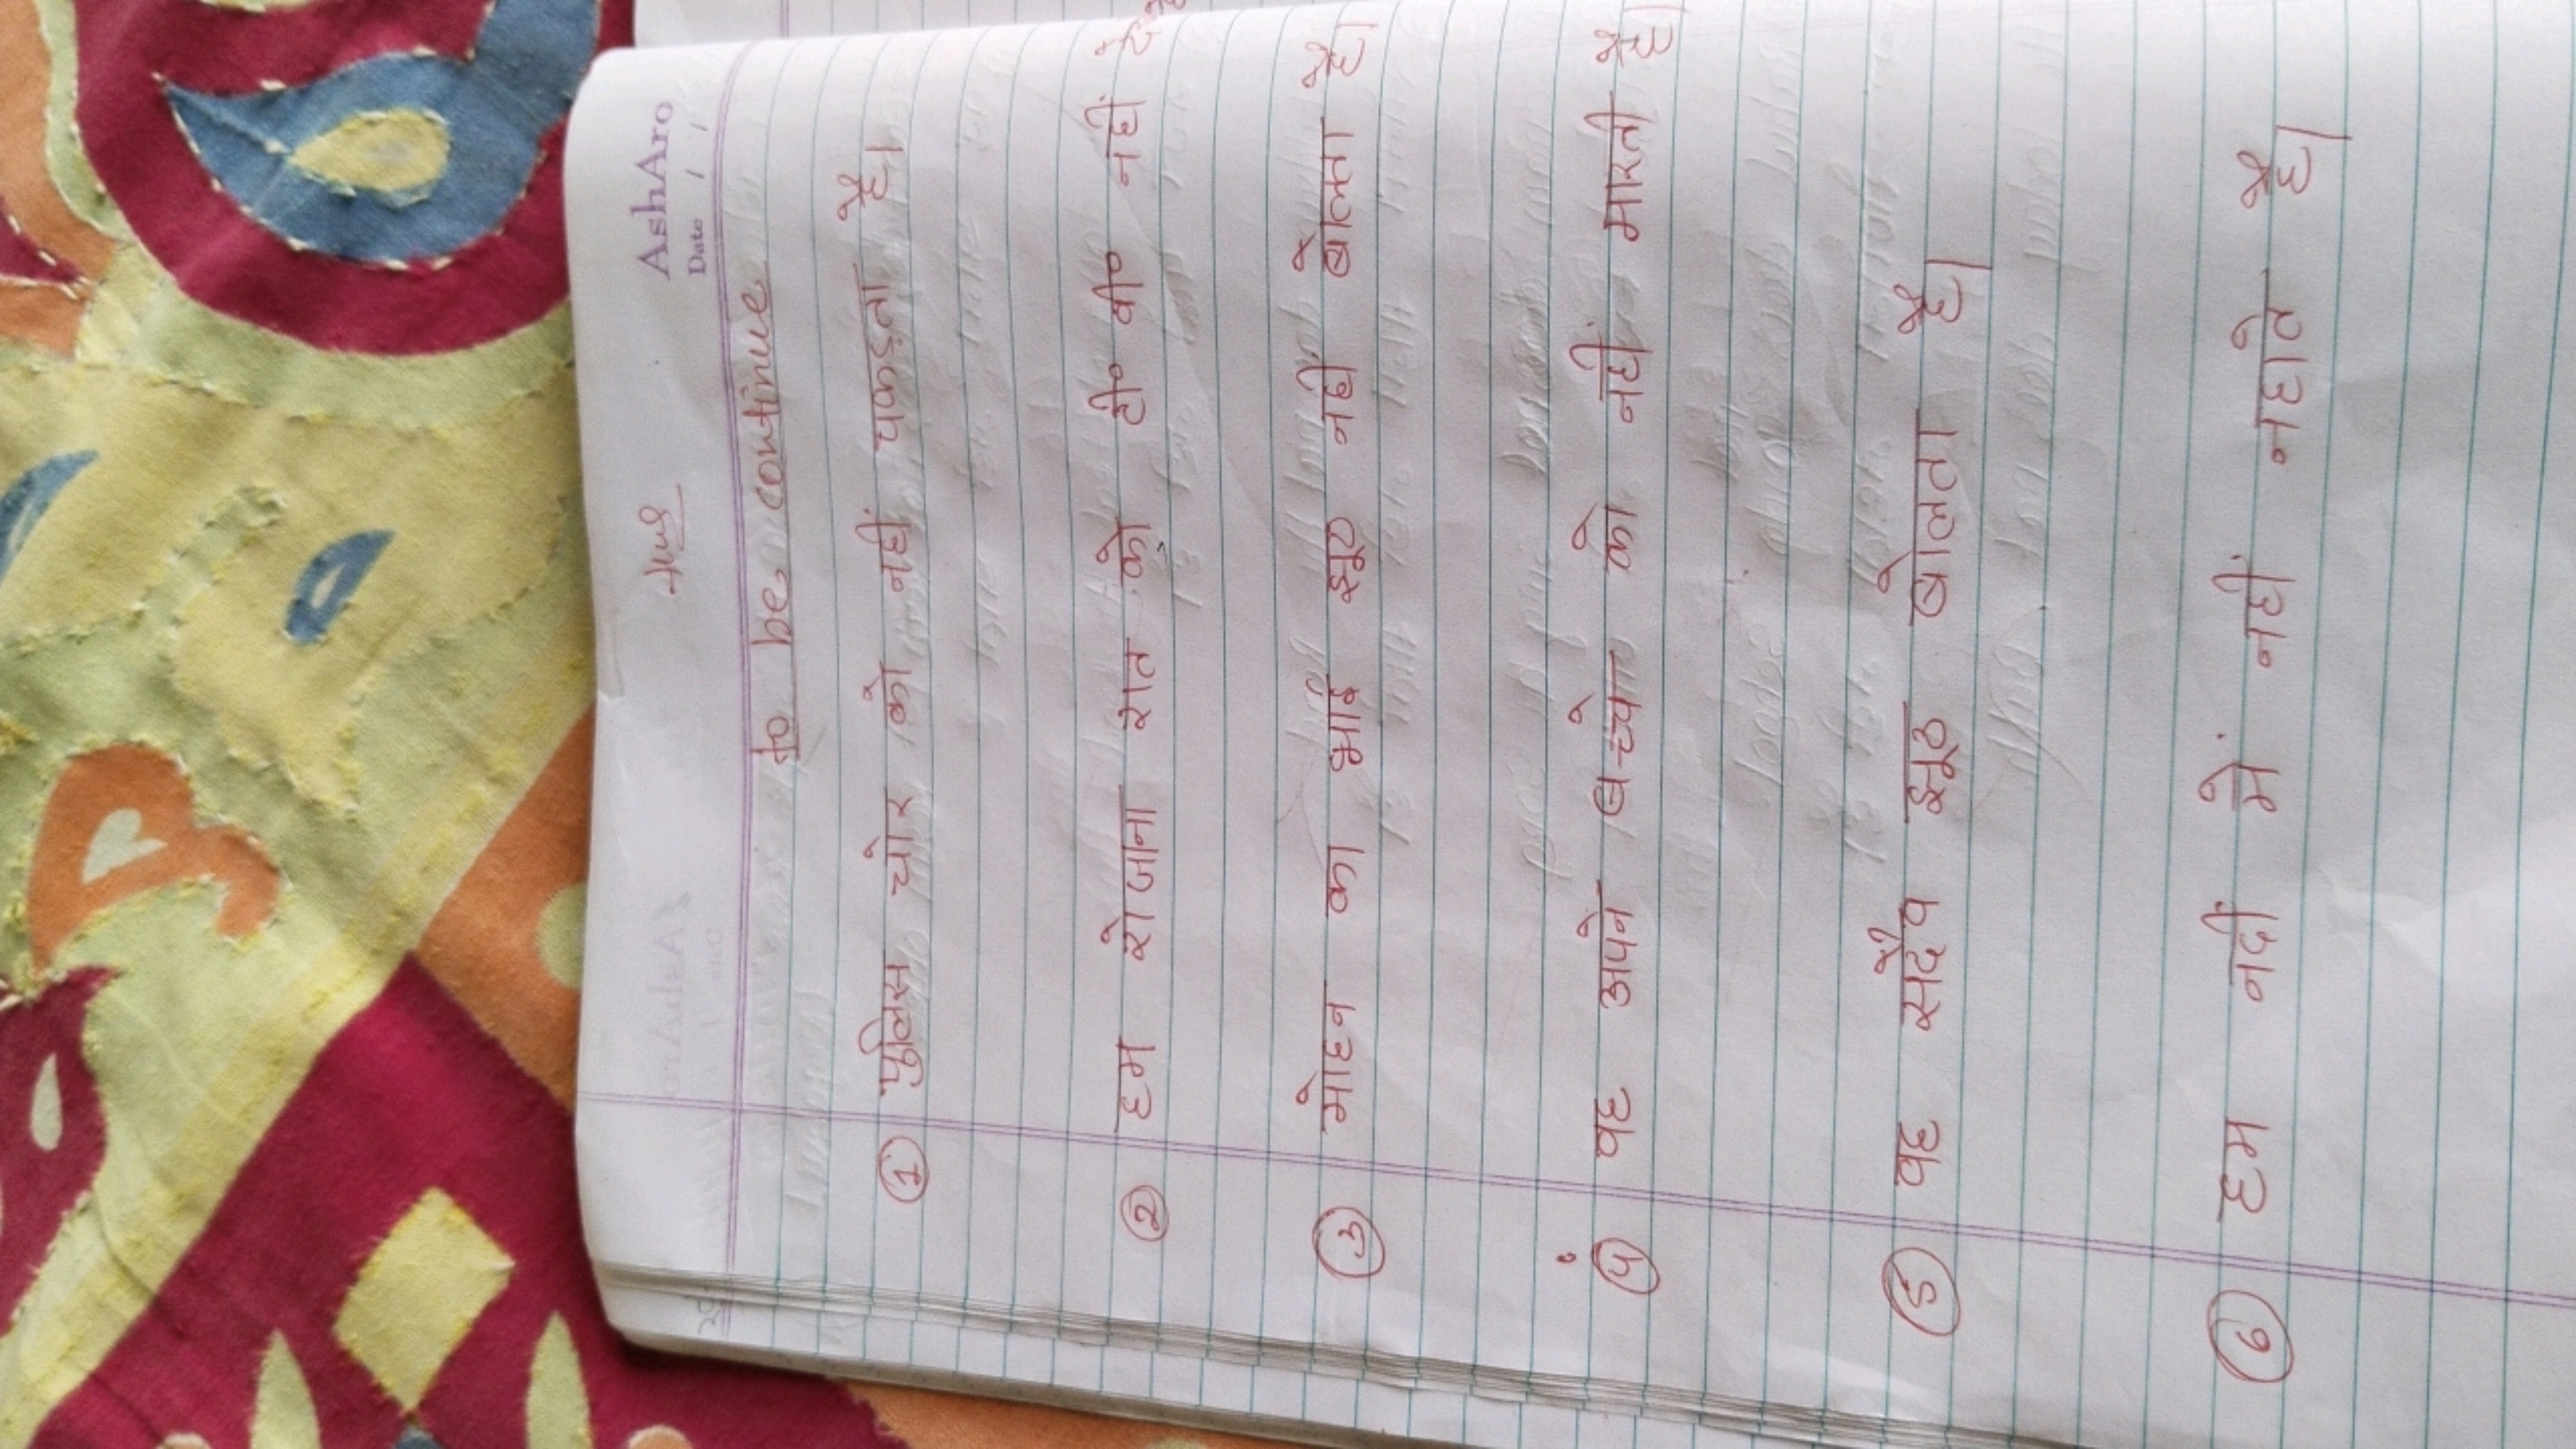 AshAro
Date / /
to be continue
① पुलिस चोर को नहीं पकड़ता है।
② हम रोजाना रात को टी० वी० नहीं
③ मोहन का भाई झूठ नहीं बोलता है।
④ वह अपने बच्चो को नहीं मारती है।
⑤ वह सदैव झूठ बोलता है।
⑥ हम नदी में नहीं नहाते है।